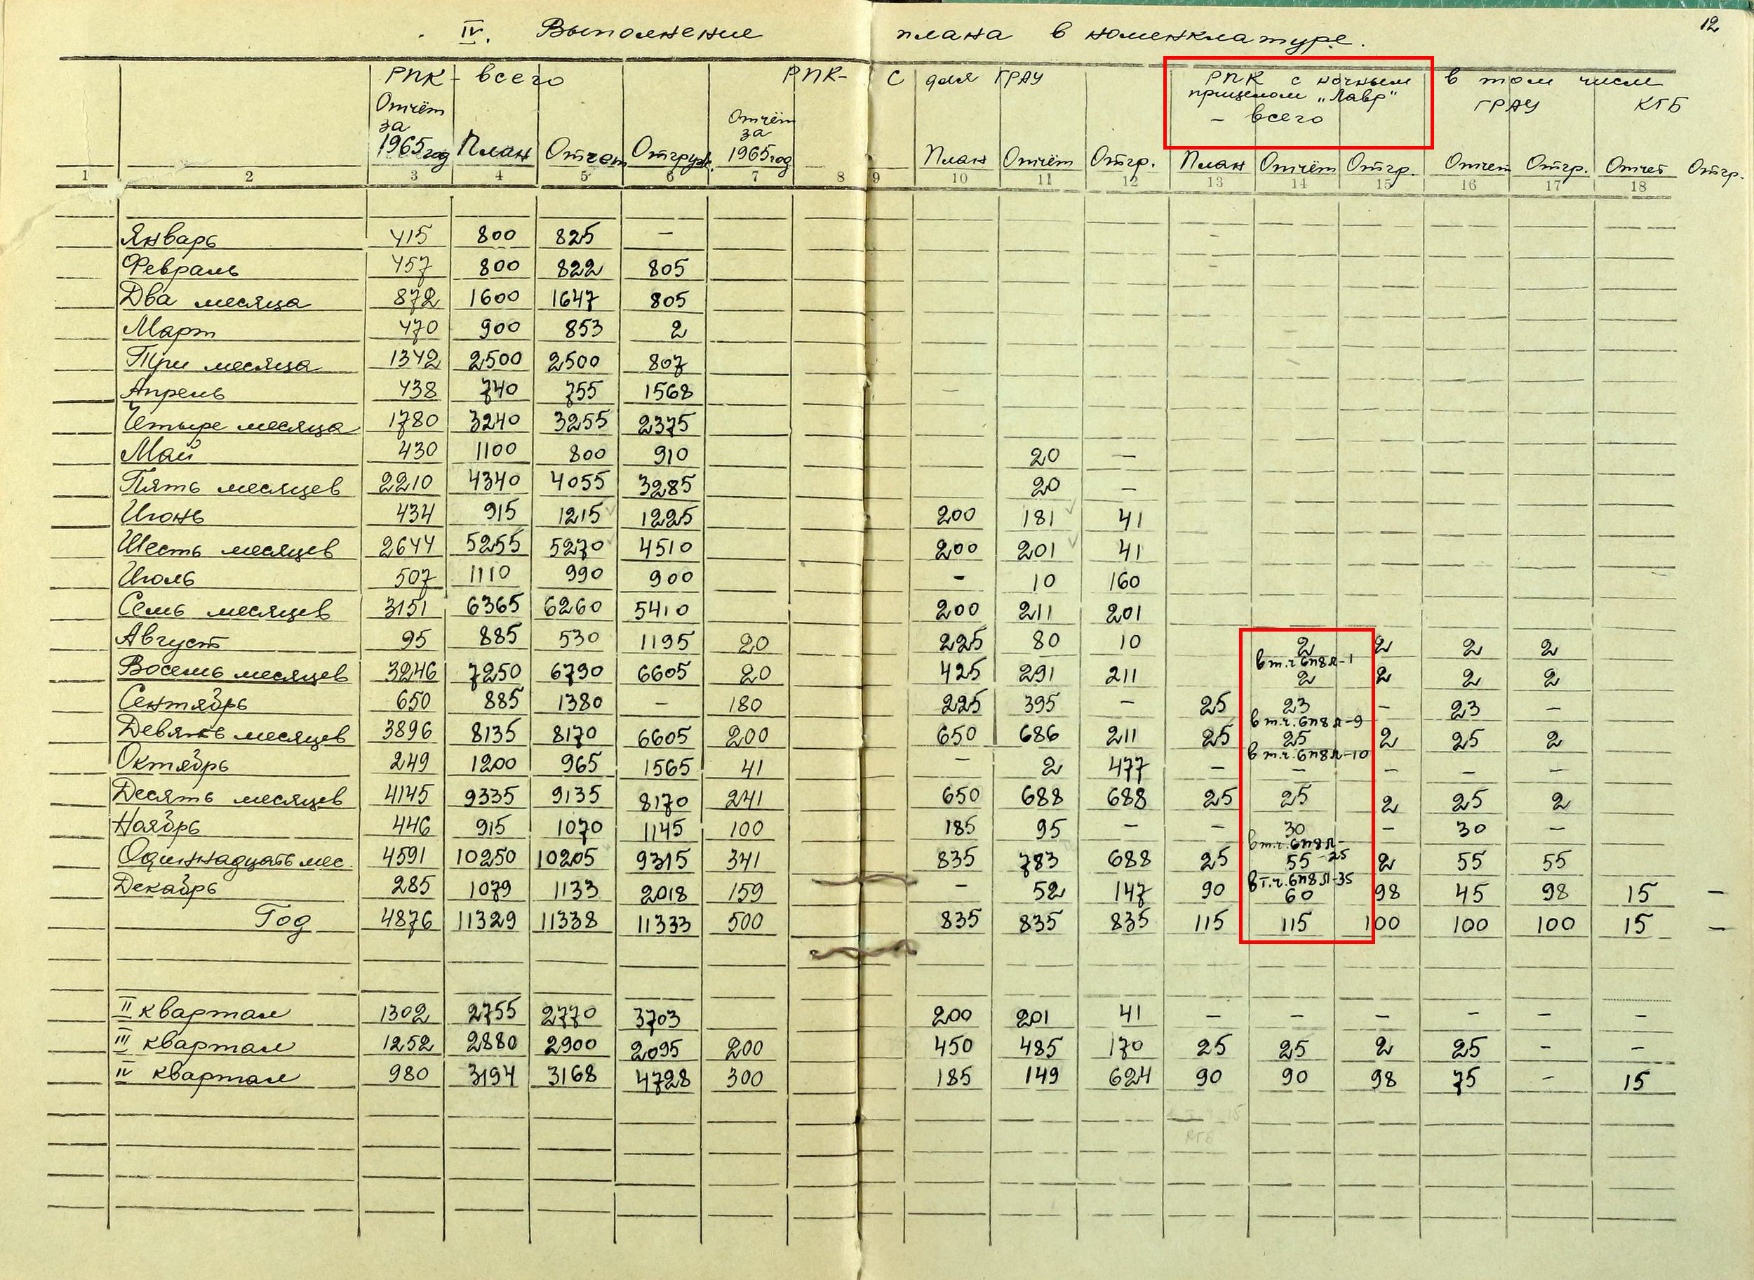 12
IV. Выполнение плана в номенклатуре.
РПК - всего РПК- С для ГРАУ РПК с ночным прицелом „Лавр" - всего в том числе ГРАУ КГБ
Отчёт за 1965 год План Отчет Отгруж. Отчёт за 1965 год План Отчёт Отгр. План Отчёт Отгр. Отчет Отгр. Отчет Отгр.
1 2 3 4 5 6 7 8 9 10 11 12 13 14 15 16 17 18
Январь 415 800 825 -
Февраль 457 800 822 805
Два месяца 872 1600 1647 805
Март 470 900 853 2
Три месяца 1342 2500 2500 807
Апрель 438 740 755 1568
Четыре месяца 1780 3240 3255 2375
Май 430 1100 800 910 20 -
Пять месяцев 2210 4340 4055 3285 20 -
Июнь 434 915 1215 1225 200 181 41
Шесть месяцев 2644 5255 5270 4510 200 201 41
Июль 507 1110 990 900 - 10 160
Семь месяцев 3151 6365 6260 5410 200 211 201
Август 95 885 530 1195 20 225 80 10 2 2 2 2
в т.ч. 6П8Л-1
Восемь месяцев 3246 7250 6790 6605 20 425 291 211 2 2 2 2
Сентябрь 650 885 1380 - 180 225 395 - 25 23 - 23 -
в т.ч. 6П8Л-9
Девять месяцев 3896 8135 8170 6605 200 650 686 211 25 25 2 25 2
в т.ч. 6П8Л-10
Октябрь 249 1200 965 1565 41 - 2 477 - - - - -
Десять месяцев 4145 9335 9135 8170 241 650 688 688 25 25 2 25 2
Ноябрь 446 915 1070 1145 100 185 95 - - 30 - 30 -
в т.ч. 6П8Л-25
Одиннадцать мес. 4591 10250 10205 9315 341 835 783 688 25 55 2 55 55
в т.ч. 6П8Л-35
Декабрь 285 1079 1133 2018 159 - 52 147 90 60 98 45 98 15 -
Год 4876 11329 11338 11333 500 835 835 835 115 115 100 100 100 15 -
II квартал 1302 2755 2770 3703 200 201 41 - - - - - -
III квартал 1252 2880 2900 2095 200 450 485 170 25 25 2 25 - -
IV квартал 980 3194 3168 4728 300 185 149 624 90 90 98 75 - 15